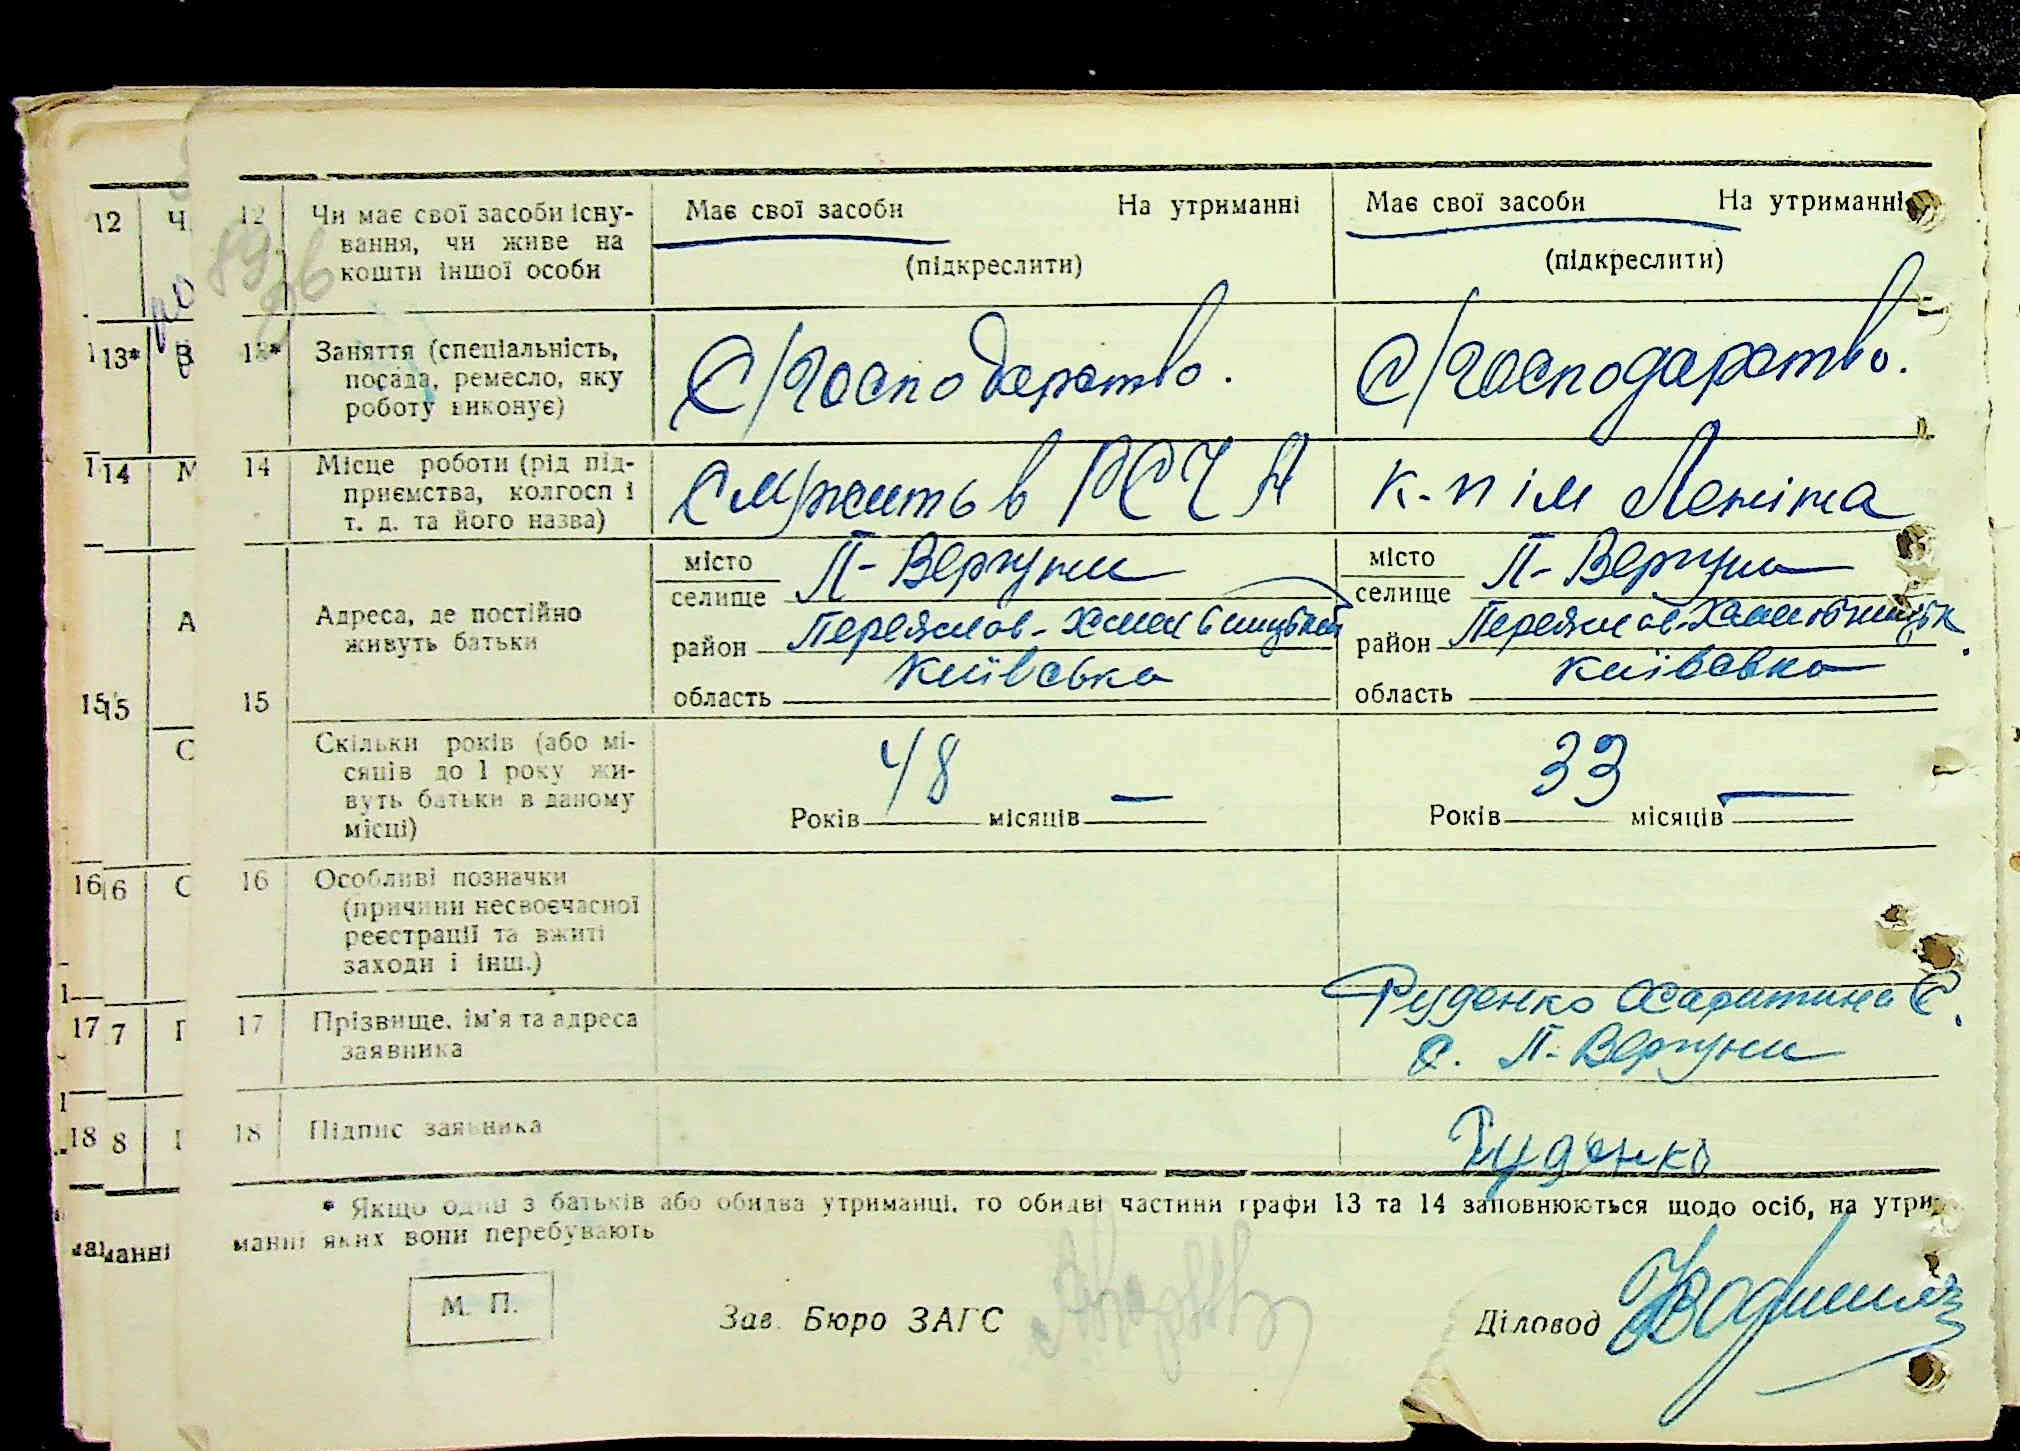 12 Чи має свої засоби існу-
вання, чи живе на
кошти іншої особи
Має свої засоби На утриманні
(підкреслити)
Має свої засоби На утриманні
(підкреслити)
13* Заняття (спеціальність,
посада, ремесло, яку
роботу виконує)
С/господарство.
С/господарство.
14 Місце роботи (рід під-
приємства, колгосп і
т. д. та його назва)
Служить в РСЧА
К-п ім Леніна
15 Адреса, де постійно
живуть батьки
місто
селище П-Вергуни
район Переяслов-Хмельницький
область Київська
місто
селище П-Вергуни
район Переяслов-Хмельницьк.
область Київська
Скільки років (або мі-
сяців до 1 року жи-
вуть батьки в даному
місці)
Років 48 місяців —
Років 33 місяців —
16 Особливі позначки
(причини несвоєчасної
реєстрації та вжиті
заходи і інш.)
17 Прізвище, ім'я та адреса
заявника
Руденко Харитина Є.
с. П-Вергуни
18 Підпис заявника
Руденко
* Якщо один з батьків або обидва утриманці, то обидві частини графи 13 та 14 заповнюються щодо осіб, на утри-
манні яких вони перебувають
М. П.
Зав. Бюро ЗАГС
Діловод